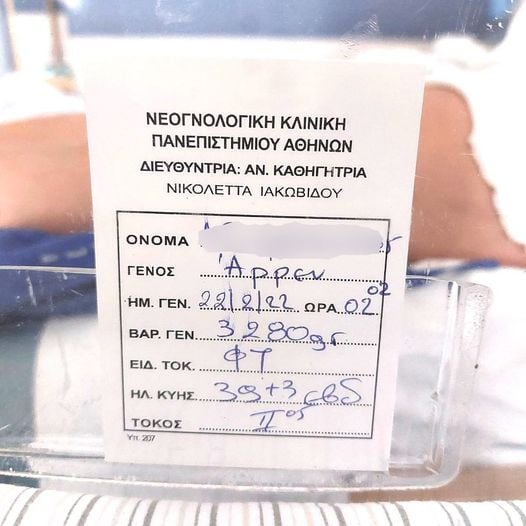 ΝΕΟΓΝΟΛΟΓΙΚΗ ΚΛΙΝΙΚΗ
ΠΑΝΕΠΙΣΤΗΜΙΟΥ ΑΘΗΝΩΝ
ΔΙΕΥΘΥΝΤΡΙΑ: ΑΝ. ΚΑΘΗΓΗΤΡΙΑ
ΝΙΚΟΛΕΤΤΑ ΙΑΚΩΒΙΔΟΥ
ΟΝΟΜΑ
ΓΕΝΟΣ Άρρεν
ΗΜ. ΓΕΝ. 22/2/22 ΩΡΑ 02 02
ΒΑΡ. ΓΕΝ. 3280gr
ΕΙΔ. ΤΟΚ. ΦΤ
ΗΛ. ΚΥΗΣ. 39+3 εβδ
ΤΟΚΟΣ IIος
Υπ. 207